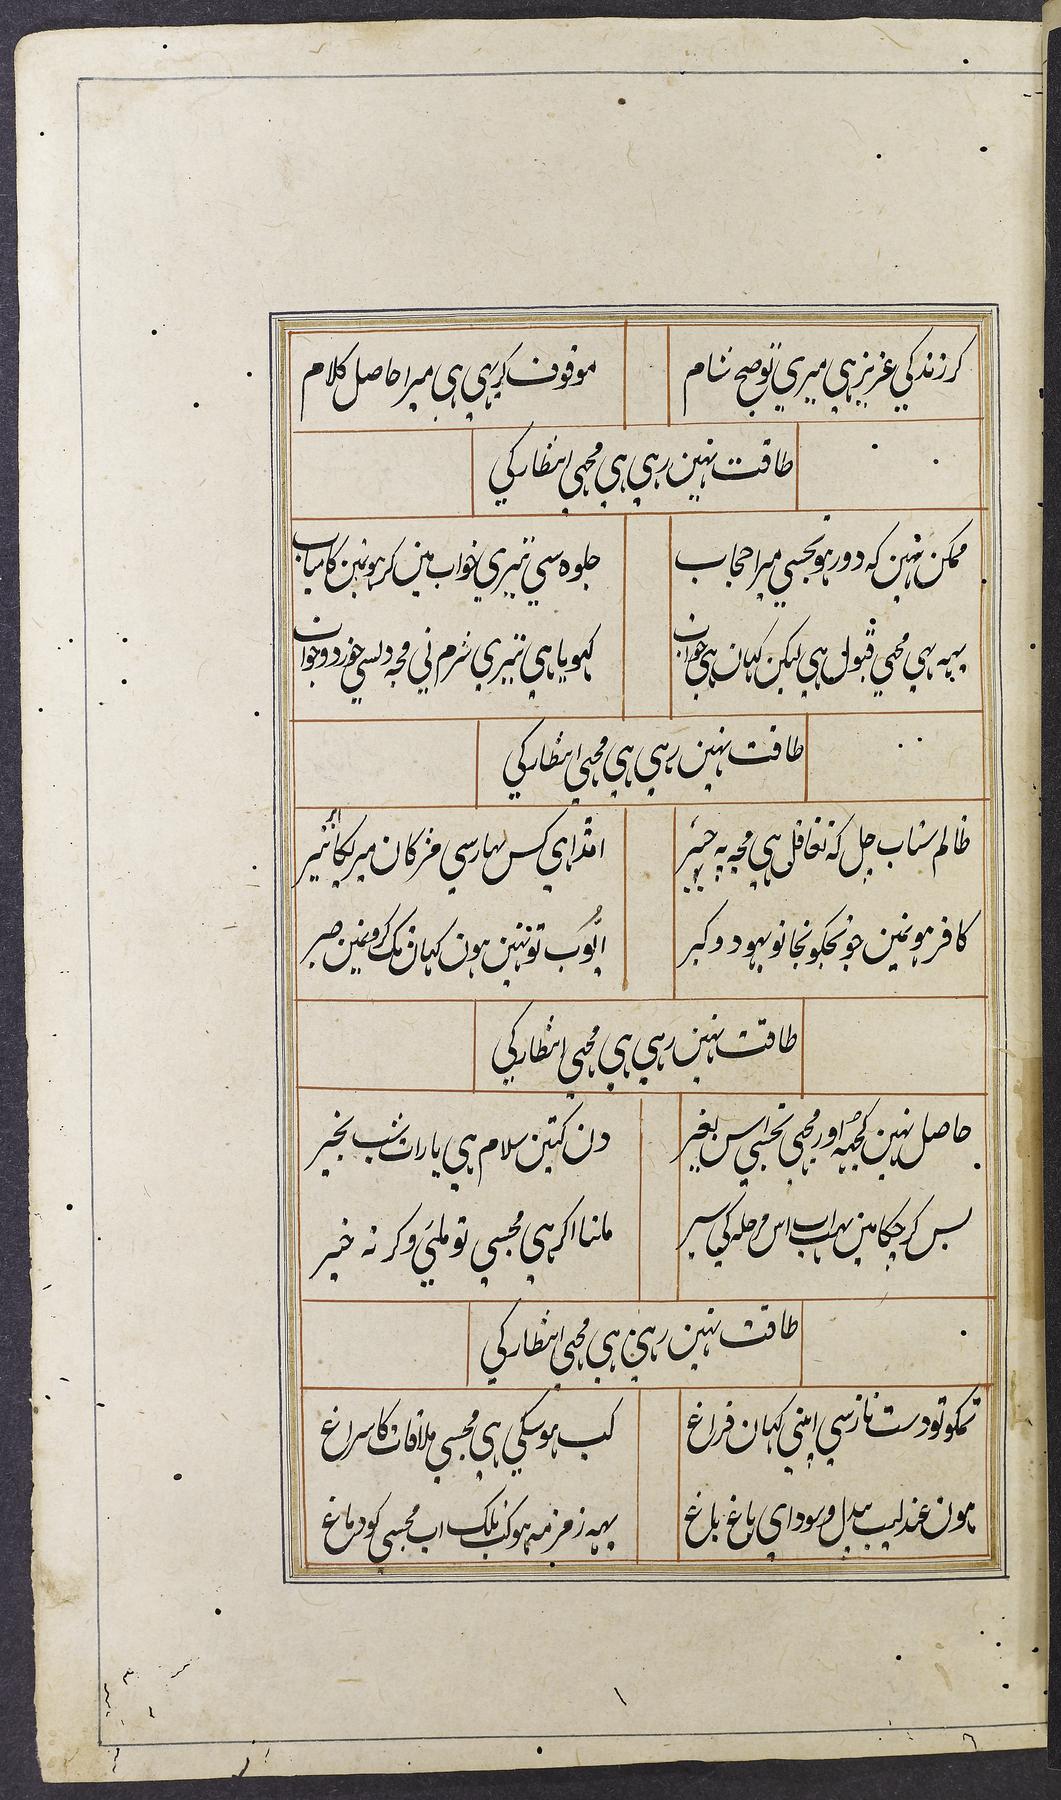 کر زندکی عزیز ہی میری تو صبح شام موقوف کر یہی ہی میرا حاصل کلام
طاقت نہین رہی ہی مجہی انتظار کی
ممکن نہین کہ دور ہو تجسی میرا حجاب جلوہ سی تیری خواب مین کر ہونمین کامیاب
یہہ بہی مجہی قبول ہی لیکن کہان ہی خواب کہویا ہی تیری شرم نی مجہ دلسی خورد و خواب
طاقت نہین رہی ہی مجہی انتظار کی
ظالم شتاب چل کہ تغافل ہی مجہ پہ امڈا ہی کس بہار سی مژکان میریکا ابر
کافر ہونمین جو تجکو نجانو یہود و کبر ایوب تو نہین ہون کہان تک کرونمین صبر
طاقت نہین رہی ہی مجہی انتظار کی
حاصل نہین کچہہ اور مجہی تجسی اس بغیر دن کتین سلام ہی یا رات شب بخیر
بس کر چکا مین بہت اب اس مرحلہ کی سیر ملنا اکر ہی مجسی تو ملئی وکر نہ خیر
طاقت نہین رہی ہی مجہی انتظار کی
تمکو تو دست ناز سی اپنی کہان فراغ کب ہو سکی ہی مجسی ملاقات کا سراغ
ہون عندلیب بیدل و سودای باغ باغ یہہ زمزمہ ہو کب تلک اب مجسی کو دماغ